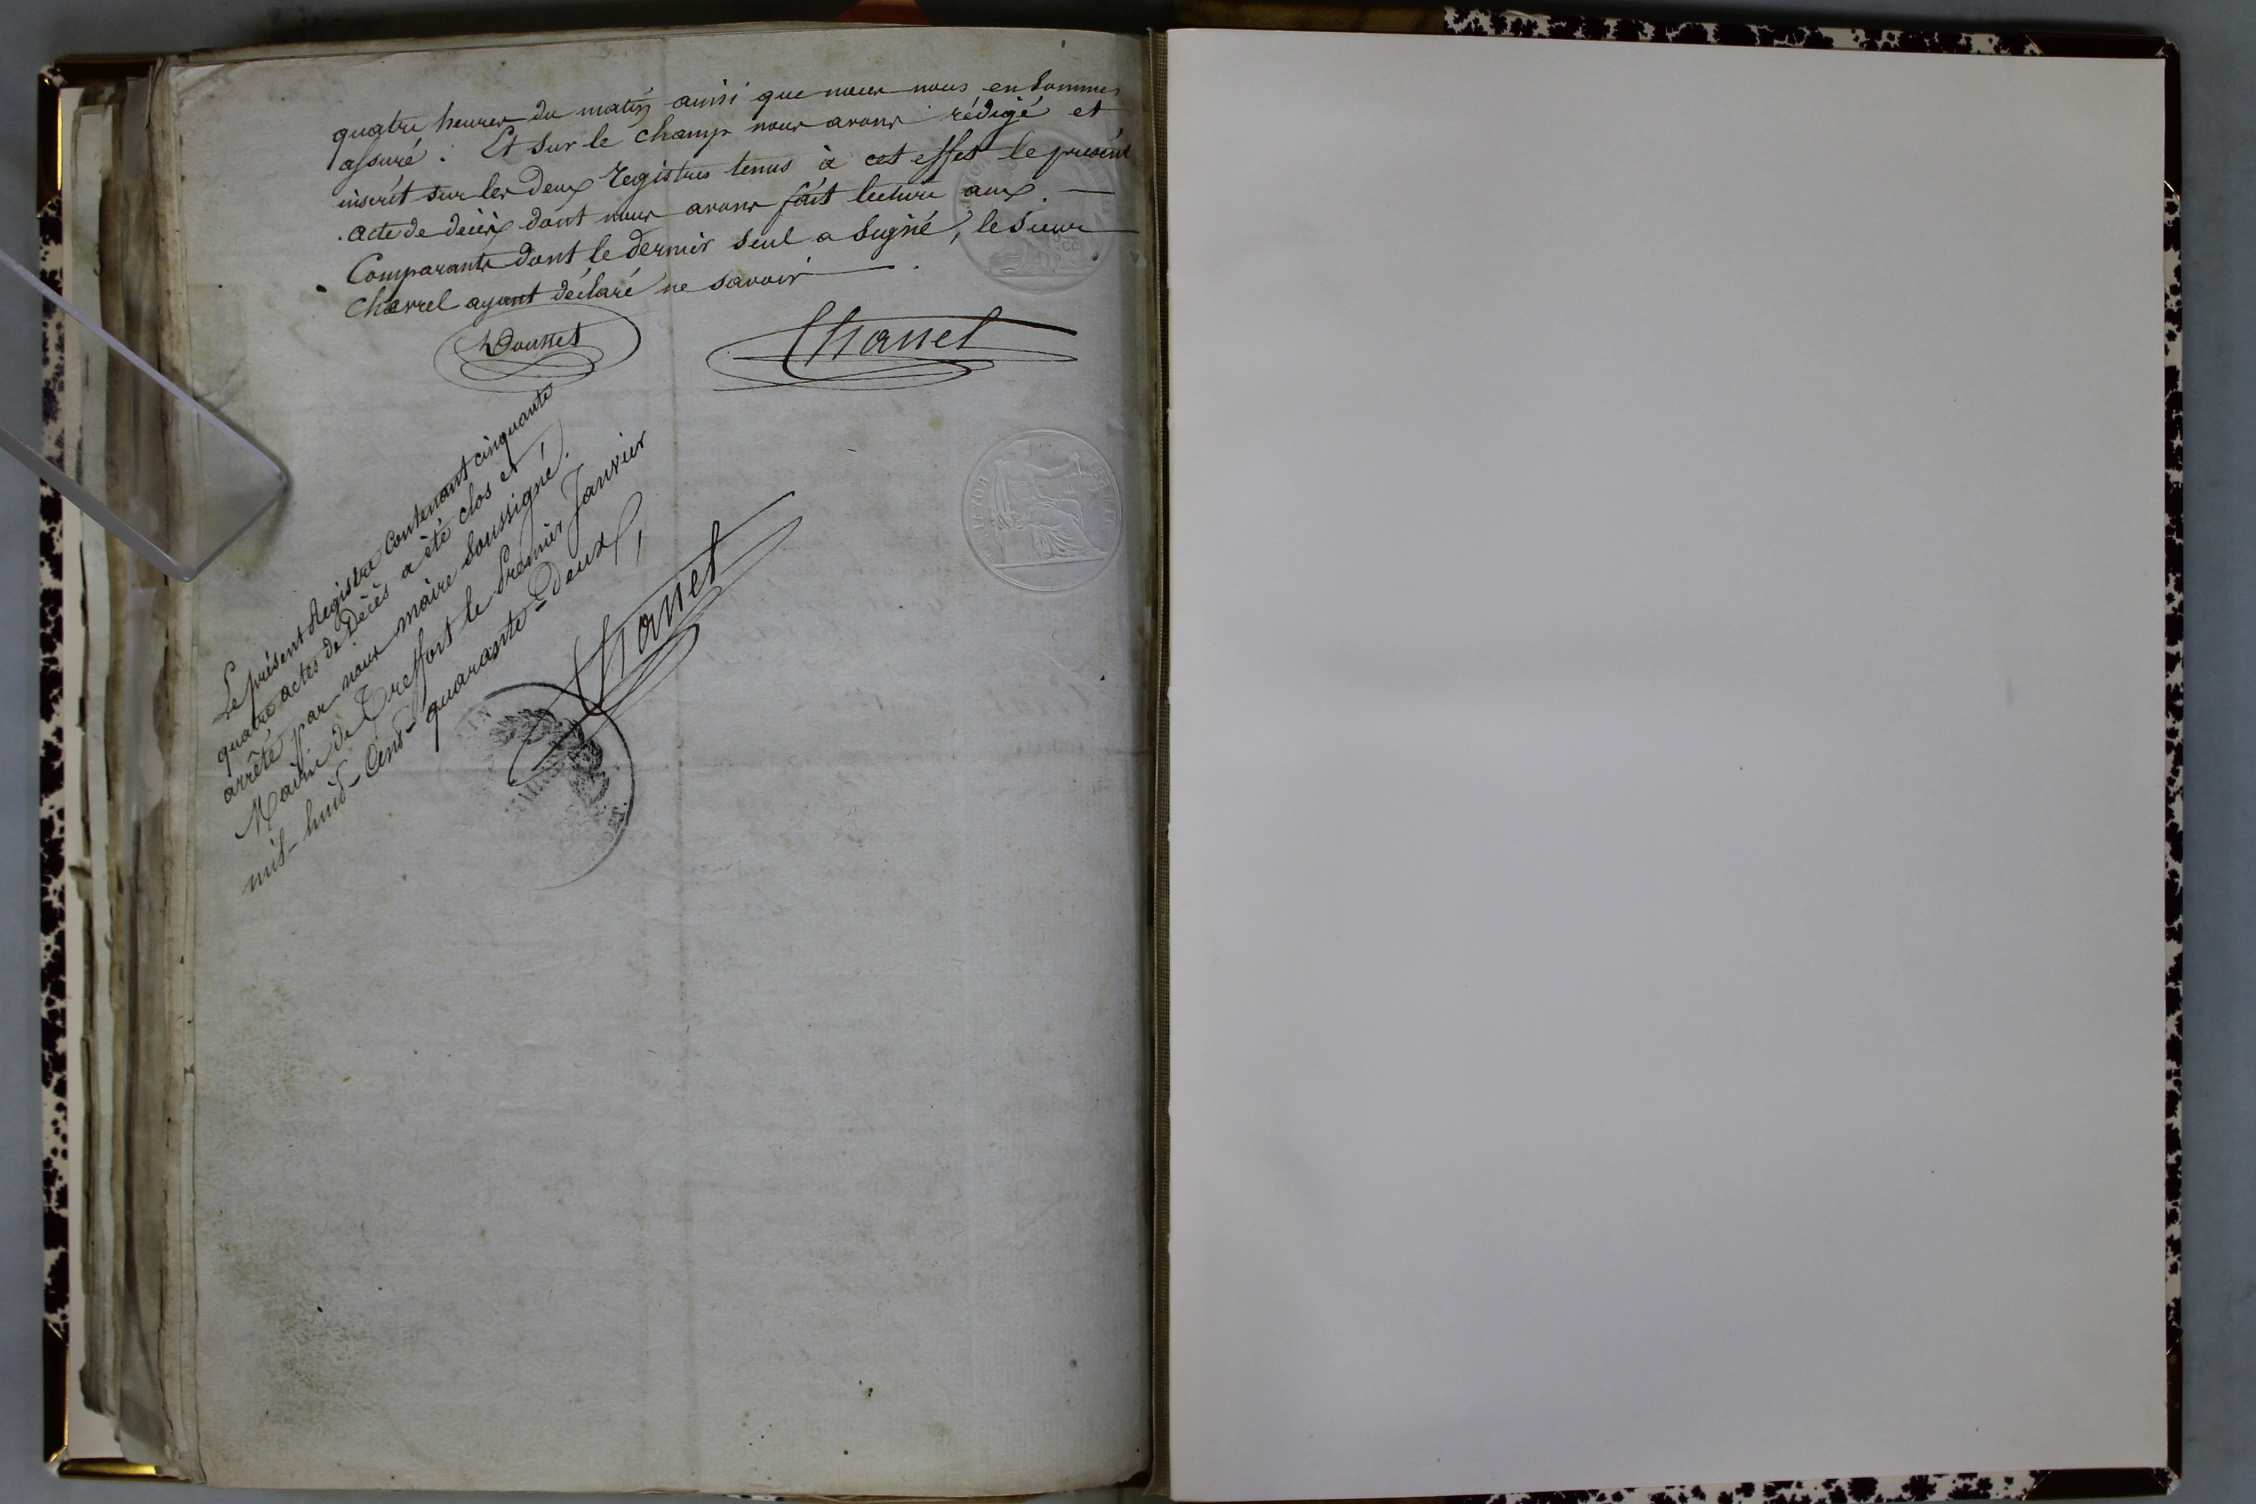 quatre heures du matin ainsi que nous nous en sommes
assuré. Et sur le champ nous avons rédigé et
inscrit sur les deux registres tenus à cet effet le présent
acte de décès dont nous avons fait lecture aux
Comparants dont le dernier seul a signé, le sieur
Charrel ayant déclaré ne savoir
Chanel
Le présent Registre Contenant cinquante
quatre actes de Décès a été clos et
arrêté par nous maire soussigné.
Mairie de Treffort le premier Janvier
mil-huit-Cent-quarante-deux
Chanel